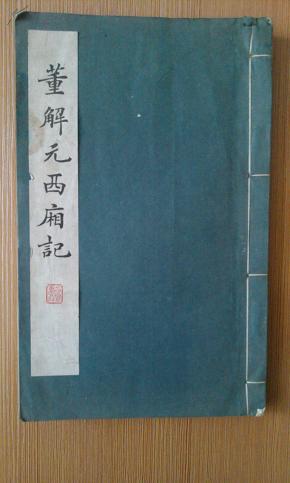 董解元西廂記